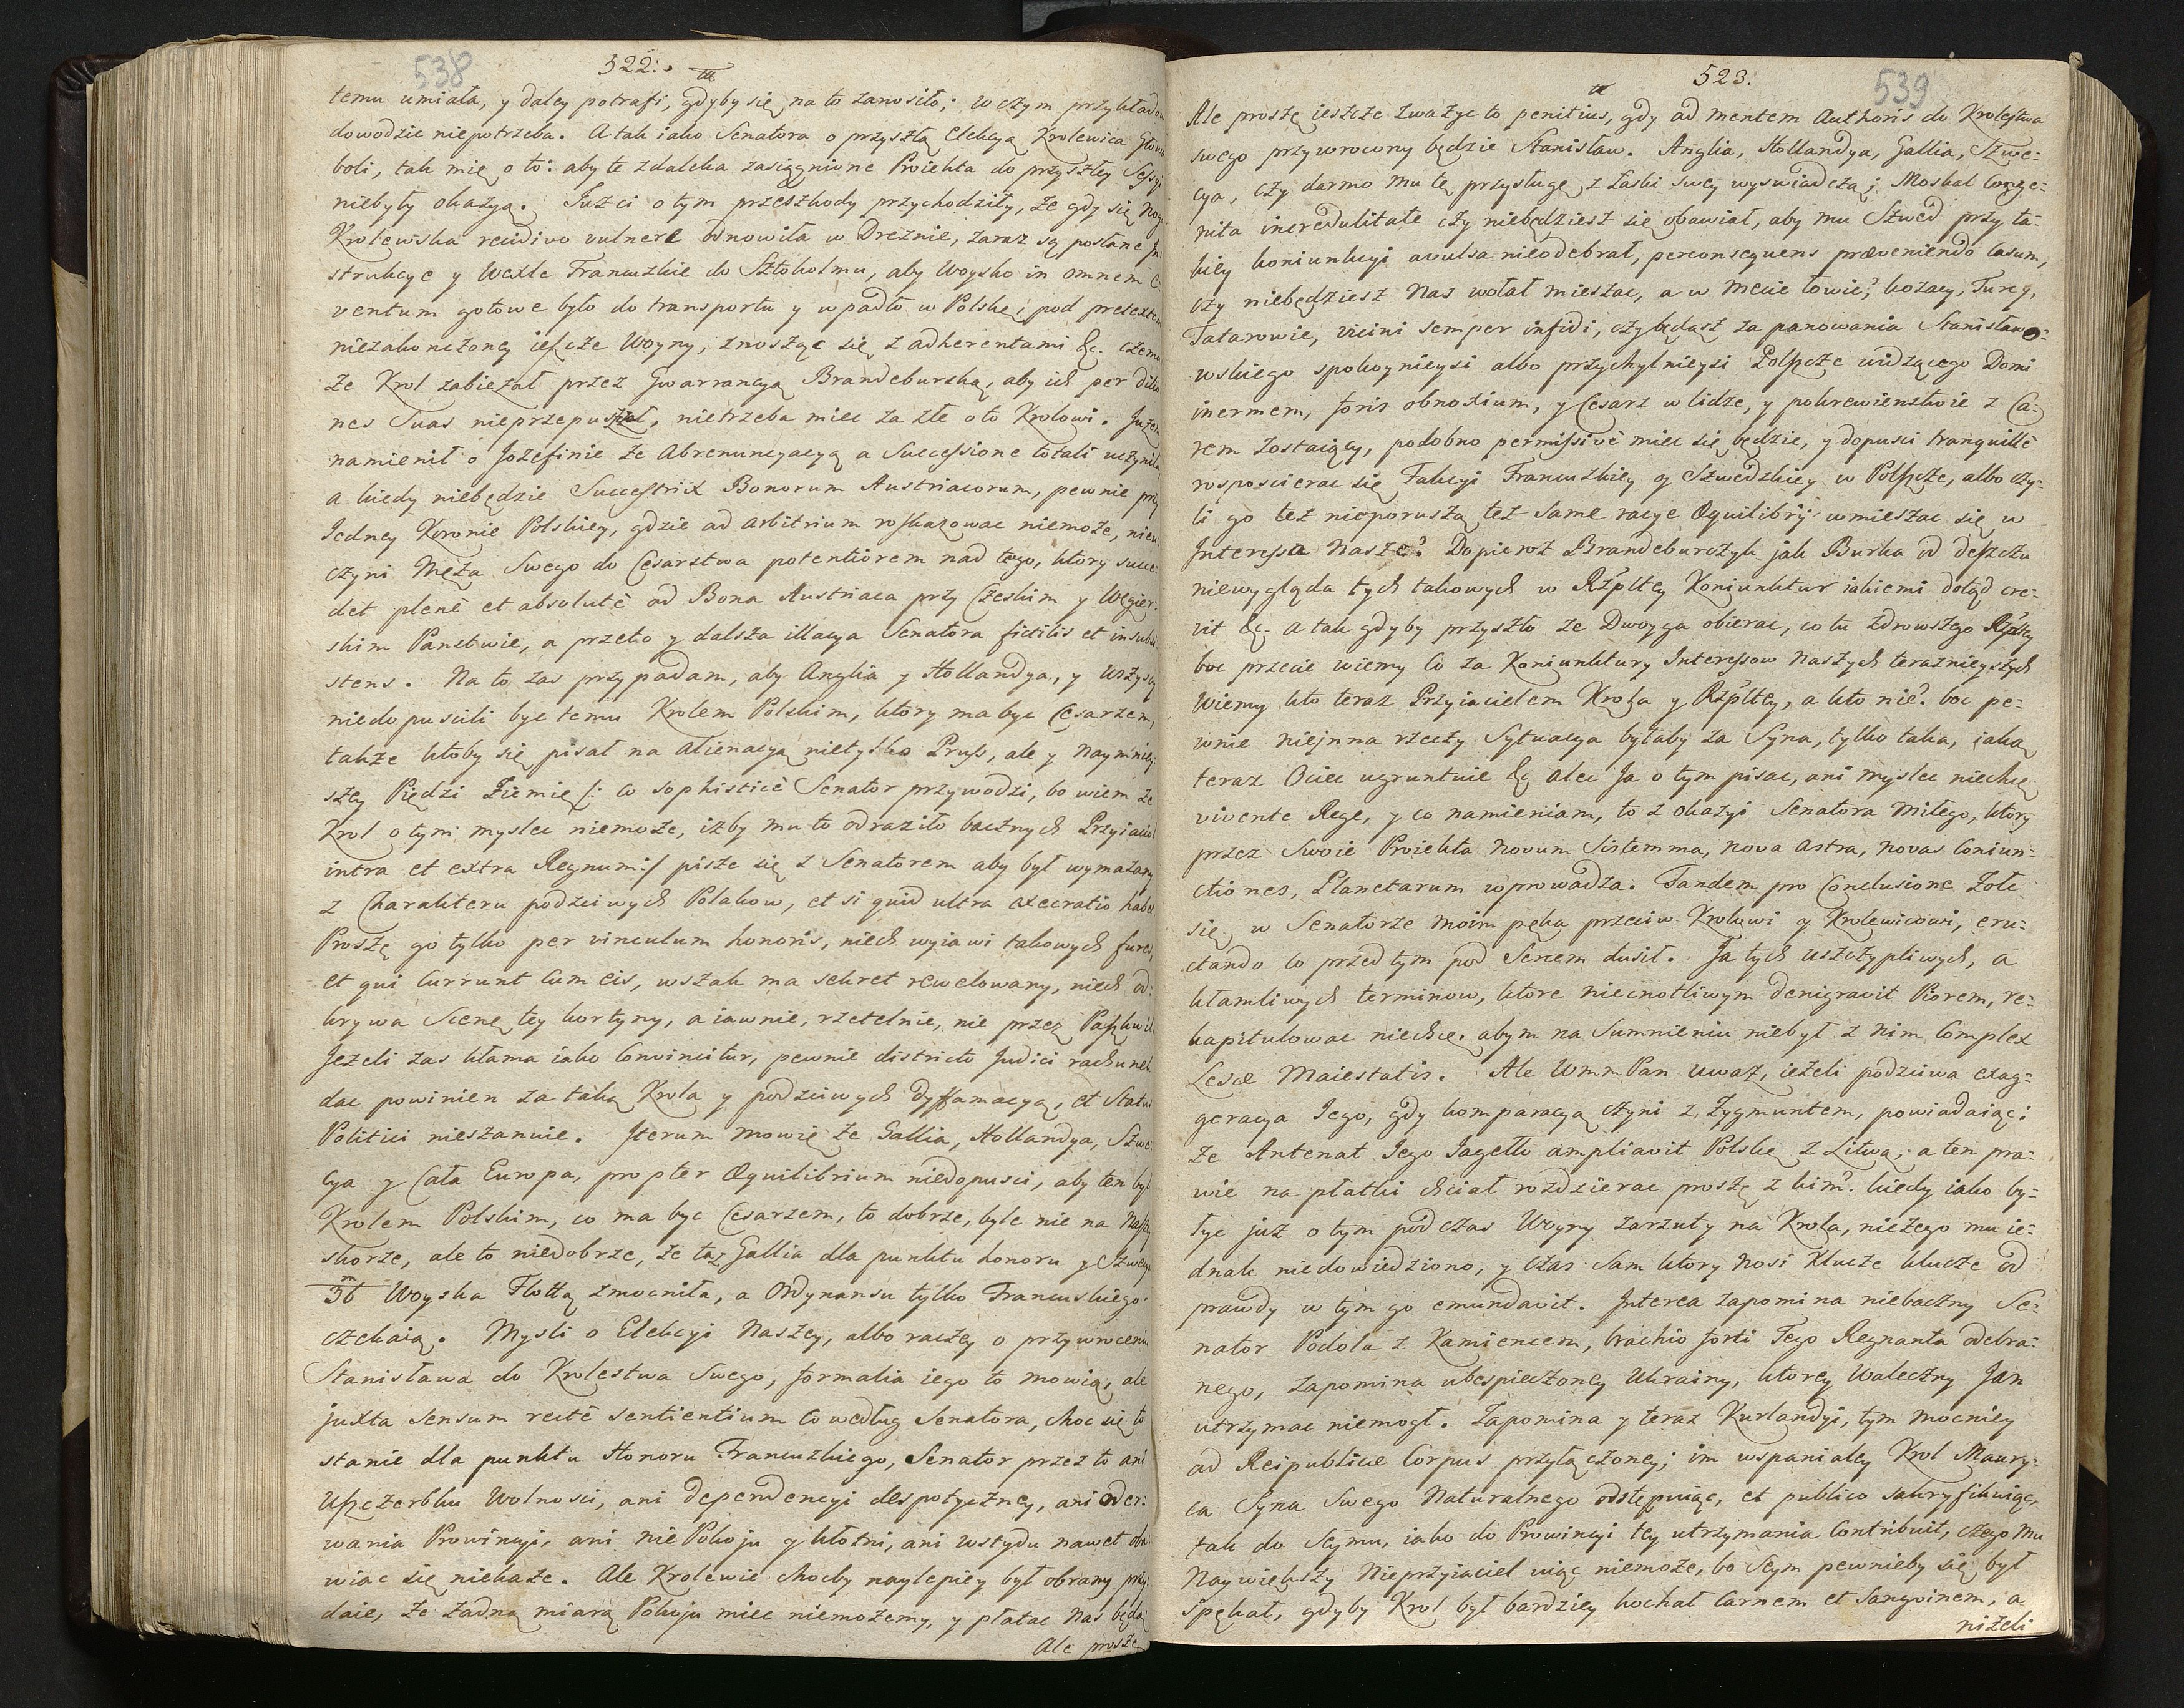 538
522.
temu umiała, y daley potrafi, gdyby się na to zanosiło; w czym przykładow
dowodzic niepotrzeba. A tak iako Senatora o przyszłą Elekcyą Krolewica głowa
boli, tak mię o to: aby te zdaleka zasiągnione Proiekta do przyszłey Sessyi
niebyły okazyą. Juz ci o tym przeszkody przychodziły, ze gdy się noga
Krolewska recidivo vulnere odnowiła w Dreznie, zaraz są posłane In-
strukcye y Wexle Francuzkie do Sztokolmu, aby Woysko in omnem e-
ventum gotowe było do transportu y wpadło w Polskę, pod pretextem
niezakonczoney ieszcze Woyny, znosząc się z adherentami &c. czemu
Ze Krol zabiezał przez Gwarrancyą Brandeburską, aby ich per ditio
nes Suas nieprzepuszczał, nietrzeba miec za złe o to Krolowi. Juzem
namienił o Jozefinie ze Abrenuncyacyą a Successione totali uczyniła,
a kiedy niebędzie Successtrix Bonorum Austriacorum, pewnie przy
Jedney Koronie Polskiey, gdzie ad arbitrium roskazowac niemoze, nieu
czyni Męza Swego do Cesarstwa potentiorem nad tego, ktory succe-
det plenè et absolutè ad Bona Austriaca przy Czeskim y Węgier-
skim Panstwie, a przeto y dalsza illacya Senatora fictilis et insubsi
stens. Na to zas przypadam, aby Anglia y Hollandya, y wszyscy
niedopuscili byc temu Krolem Polskim, ktory ma byc Cesarzem,
takze ktoby się pisał na alienacyą nietylko Pruss, ale y naymniey-
szey Piędzi Ziemie /: co sophisticè Senator przywodzi, bo wiem ze
Krol o tym myslec niemoze, izby mu to odraziło bacznych Przyiaciol
intra et extra Regnum :/ pisze się z Senatorem aby był wymazany
z Charakteru podzciwych Polakow, et si quid ultra execratio habet
Proszę go tylko per vinculum honoris, niech wyiawi takowych fures,
et qui currunt cum eis, wszak ma sekret rewelowany, niech od-
krywa Scenę tey kortyny, a iawnie, rzetelnie, nie przez Paszkwil
Jezeli zas kłama iako convincitur, pewnie districto Judici rachunek
dac powinien za taką Krola y podzciwych dyffamacyą, et Status
Politici nieszanuie. Iterum mowię ze Gallia, Hollandya, Szwe-
cya y Cała Europa, propter Æquilibrium niedopusci, aby ten był
Krolem Polskim, co ma byc Cesarzem, to dobrze, byle nie na naszey
skorze, ale to niedobrze, ze taz Gallia dla punktu honoru y Szwecya
36 Woyska Flottą zmocniła, a Ordynansu tylko Francuskiego
czekaią. Mysli o Elekcyi Naszey, albo raczey o przywroceniu
Stanisława do Krolestwa Swego, formalia iego to mowią, ale
juxta sensum rectè sentientium Co według Senatora, choc się to
stanie dla punktu Honoru Francuzkiego, Senator przez to ani
Uszczerbku Wolnosci, ani dependencyi despotyczney, ani oder-
wania Prowincyi, ani nie Pokoju y kłotni, ani wstydu nawet oba
wiac się niekaze. Ale Krolewic chocby naylepiey był obrany przy-
daie, ze zadną miarą Pokoju miec niemozemy, y płatac nas będą
Ale proszę
539
523.
Ale proszę ieszcze zwazyc to penitius, gdy ad mentem Authoris do Krolestwa
swego przywrocony będzie Stanisław. Anglia, Hollandya, Gallia, Szwe-
cya, czy darmo mu tę przysługę z łaski swey wyswiadczą; Moskal conge-
nita incredulitate czy niebędziesz się obawiał, aby mu Szwed przy ta-
kiey koniunkcyi avulsa nieodebrał, per consequens præveniendo casum,
czy niebędziesz nas wolał mieszac, a w mecie łowic? kozacy, Turcy,
Tatarowie, vicini semper infidi, czy będąsz za panowania Stanisławo-
wskiego spokoynieysi albo przychylnieysi Polszcze widzącego Domi
inermem, foris obnoxium, y Cesarz w lidze, y pokrewienstwie z Ca-
rem zostaiący, podobno permissivè miec się będzie, y dopusci tranquillè
rosposcierac się Fakcyi Francuzkiey y Szwedzkiey w Polszcze, albo czy-
li go tez nieporuszą tez same racye Æquilibrij umieszac się w
Interessa nasze? Dopieroz Brandeburczyk jak Burka od deszczu
niewygląda tych takowych w Rzpltey Koniunktur iakiemi dotąd cre-
vit &c. a tak gdyby przyszło ze Dwoyga obierac, co tu zdrowszego Rzpltey
boc przecie wiemy co za Koniunktury Interessow naszych teraznieyszych
Wiemy kto teraz Przyiacielem Krola y Rzpltey, a kto nie? boc pe-
wnie nieinna rzeczy Sytuacya byłaby za Syna, tylko taka, iaką
teraz Ociec ugruntuie &c alec Ja o tym pisac, ani myslec niechcę
vivente Rege, y co namieniam, to z okazyi Senatora miłego, ktory
przez Swoie Proiekta novum Sistemma, nova astra, novas coniun-
ctiones, Planetarum wprowadza. Tandem pro Conclusione zołć
się w Senatorze moim pęka przeciw Krolowi y Krolewicowi, eru-
ctando co przed tym pod Sercem dusił. Ja tych uszczypliwych, a
kłamliwych terminow, ktore niecnotliwym denigravit Piorem, re-
kapitulowac niechcę. abym na Sumnieniu niebył z nim Complex
Lesæ Maiestatis. Ale WmmPan uwaz, iezeli podzciwa exag-
geracya Jego, gdy komparacyą czyni z Zygmuntem, powiadaiąc:
Ze Antenat Jego Jagełło ampliavit Polskę z Litwą; a ten pra-
wie na płatki chciał rozdzierac proszę z kim? kiedy iako by-
łye juz o tym podczas Woyny zarzuty na Krola, niczego mu ie-
dnak niedowiedziono, y czas sam ktory nosi Klucze klucze od
prawdy w tym go emundavit. Interea zapomina niebaczny Se-
nator Podola z Kamiencem, brachio forti Tego Regnanta odebra-
nego, zapomina ubespieczoney Ukrainy, ktorey Waleczny Jan
utrzymac niemogł. Zapomina y teraz Kurlandyi, tym mocniey
ad Reipublicæ Corpus przyłączoney; im wspanialey Krol Maury-
ca Syna Swego Naturalnego odstępuiąc, et publico sakryfikuiąc,
tak do Seymu, iako do Prowincyi tey utrzymania contribuit, czego mu
Naywiększy Nieprzyiaciel uiąc niemoze, bo Seym pewnieby się był
spękał, gdyby Krol był bardziey kochał Carnem et Sangvinem, a
nizeli